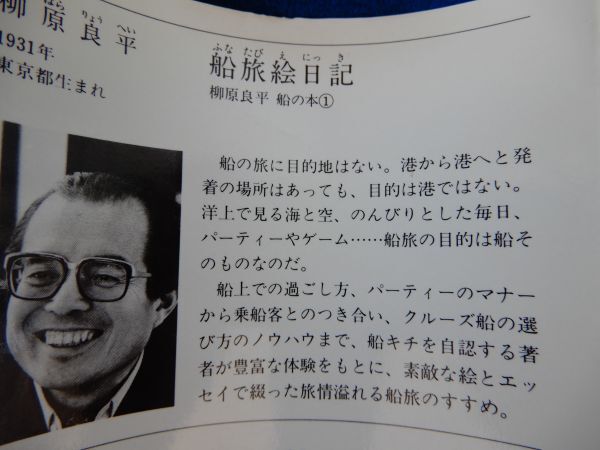 柳原良平
はら りょう へい
1931年
東京都生まれ
ふな たび え にっ き
船旅絵日記
柳原良平 船の本①
船の旅に目的地はない。港から港へと発
着の場所はあっても、目的は港ではない。
洋上で見る海と空、のんびりとした毎日、
パーティーやゲーム……船旅の目的は船そ
のものなのだ。
船上での過ごし方、パーティーのマナー
から乗船客とのつき合い、クルーズ船の選
び方のノウハウまで、船キチを自認する著
者が豊富な体験をもとに、素敵な絵とエッ
セイで綴った旅情溢れる船旅のすすめ。